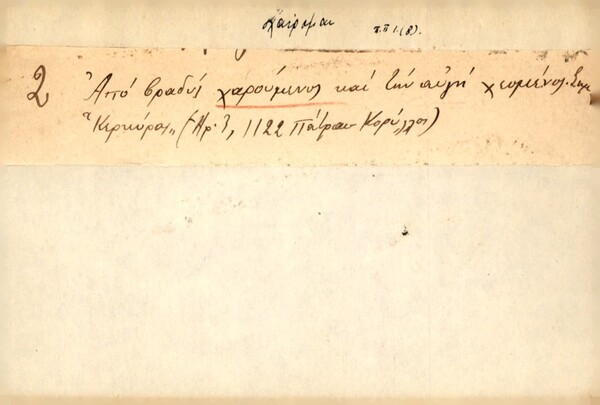 χαίρομαι τ.π 1(δ).
2 Ἀπό βραδύς χαρούμενος καί τήν αὐγή χεσμένος.
"Κερκύρας" (Ἀρ. 1122 Πάτραι Κορύλλος)